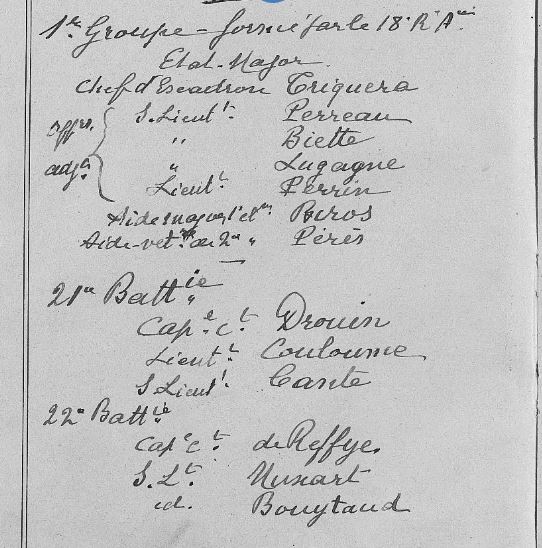 1er Groupe - formé par le 18e Rt Aie
Etat-Major
Chef d'Escadron Criquera
offrs. adjts. S. Lieutt. Perreau
" Biette
" Lagagne
Lieutt. Perrin
Aide maj Buros
Aide-vét. de 2e " Pérès
21e Battie
Cape Ct. Drouin
Lieutt Couloume
S. Lieutt. Cante
22e Battie
Cape Ct. de Reffye.
S. Lt. Nussart
id. Bouytaud